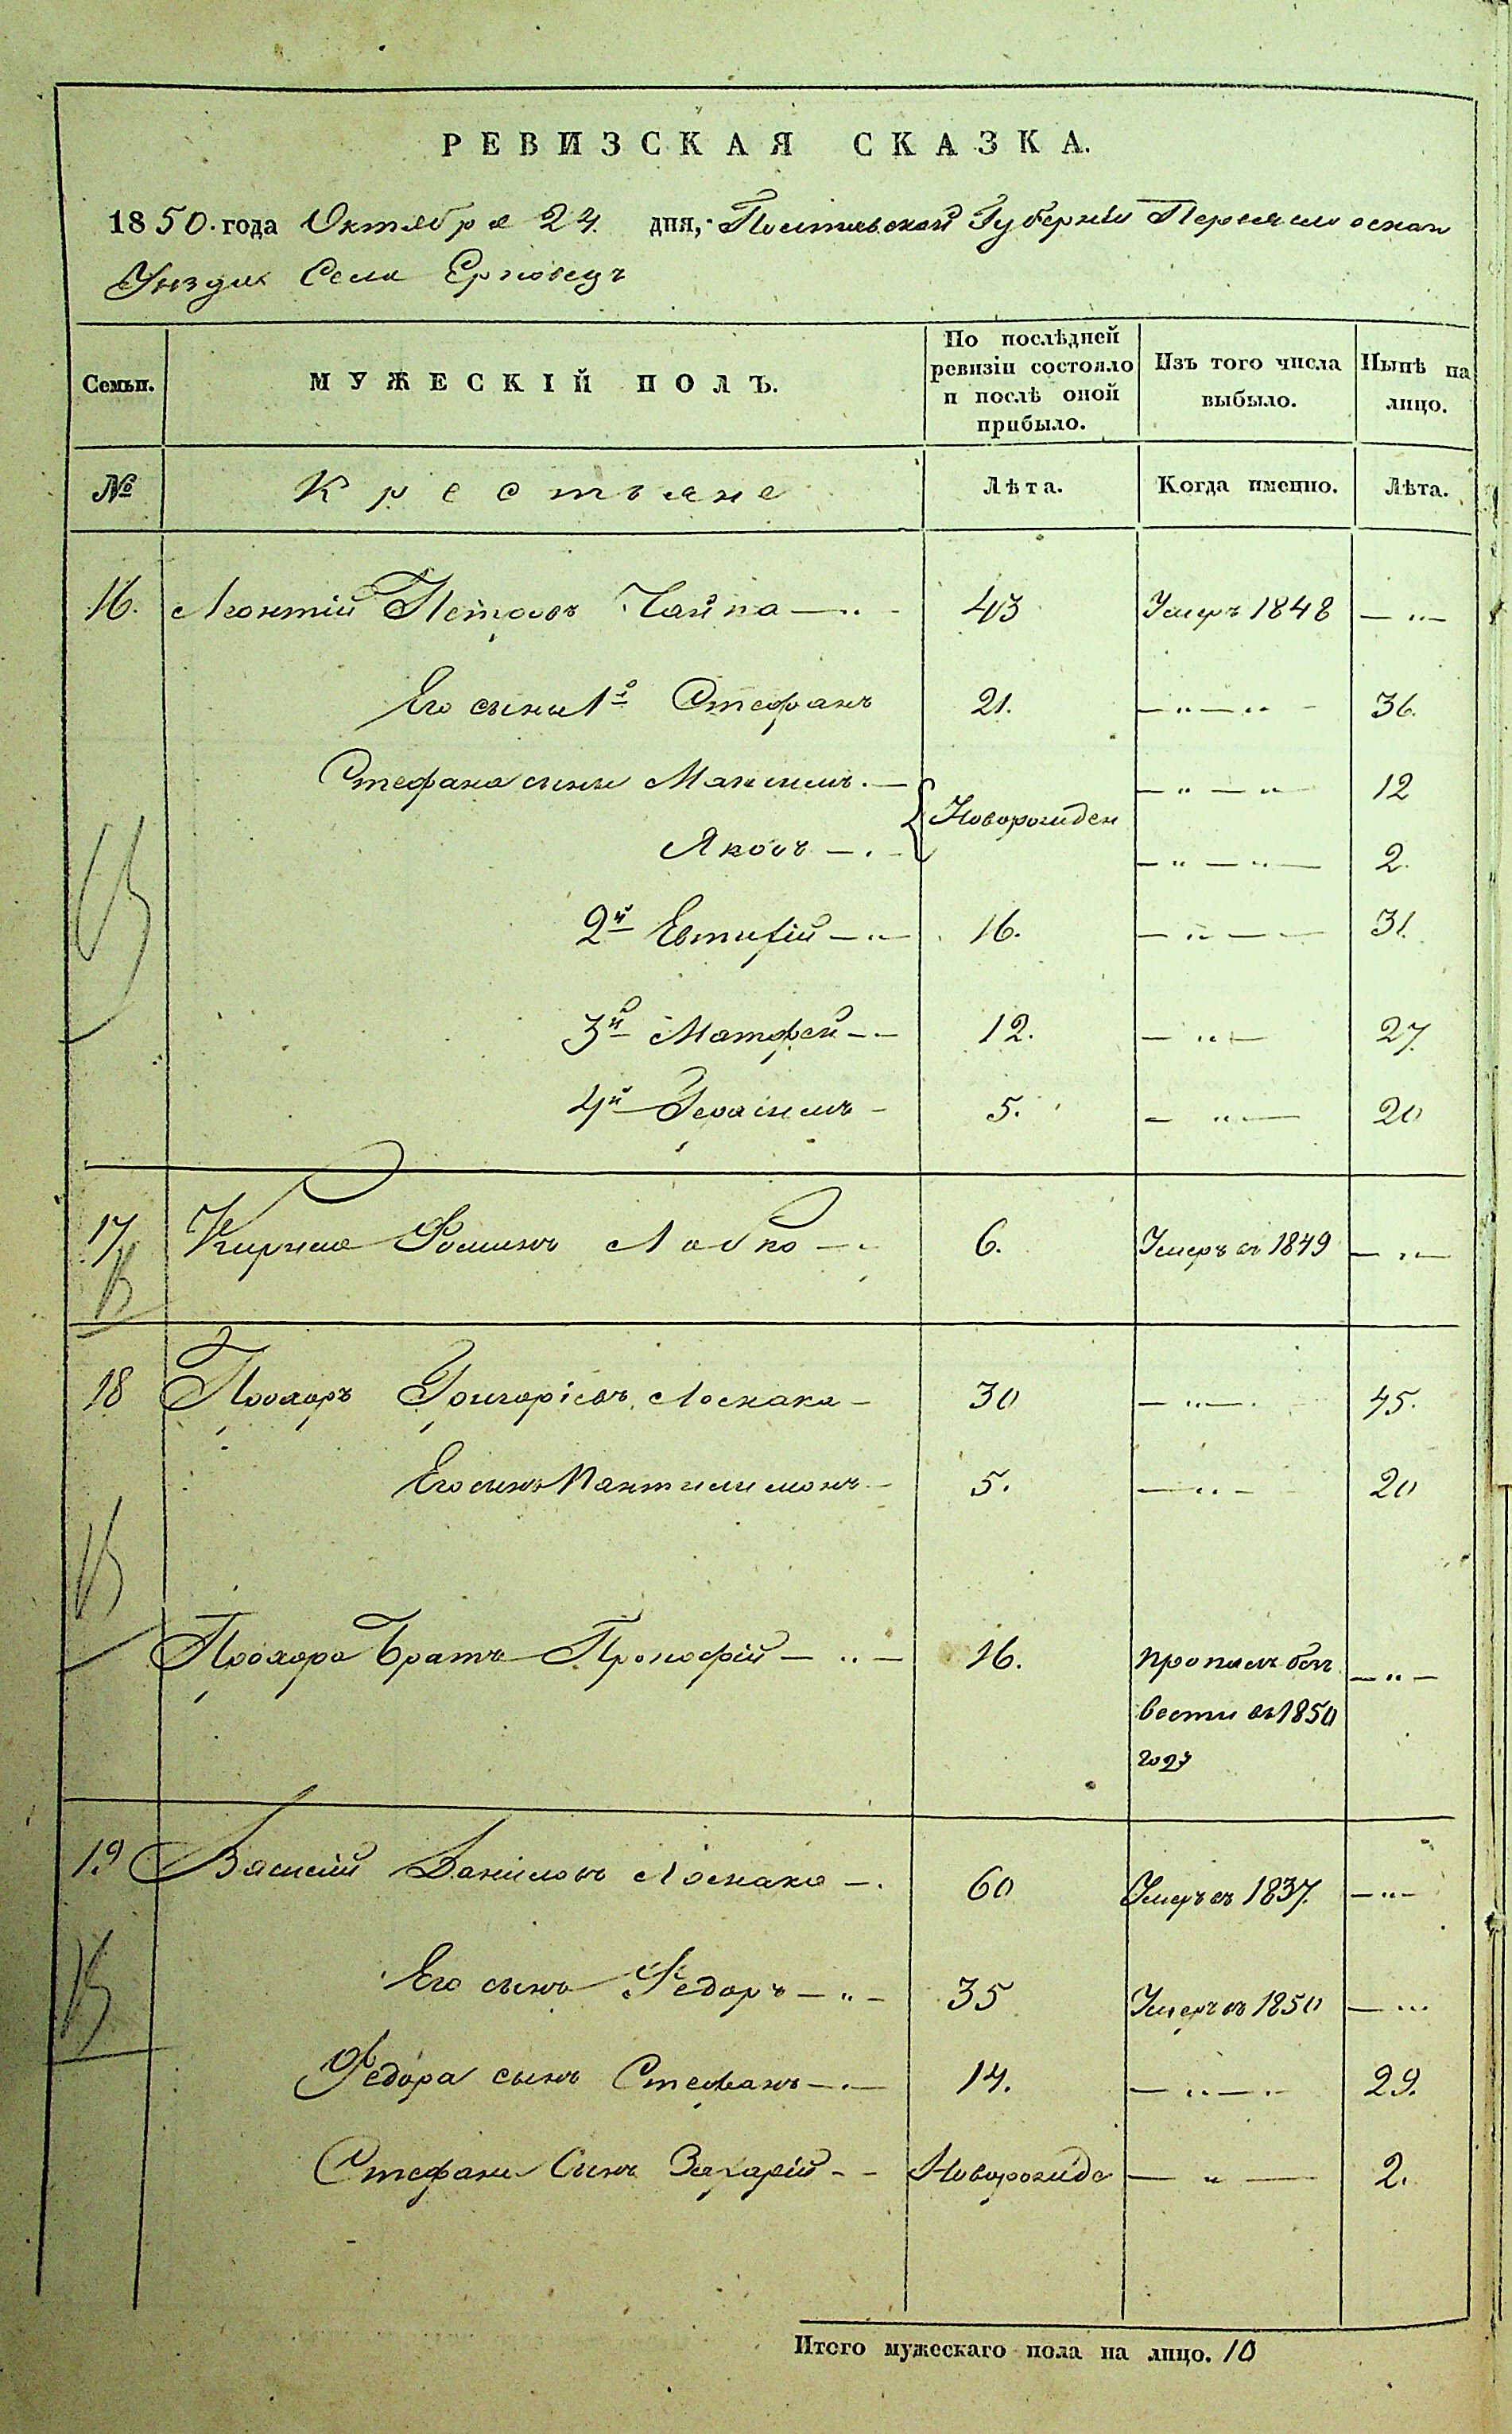 РЕВИЗСКАЯ СКАЗКА.
1850. года Октября 24. дня, Полтавской Губернiи Переяславскаго
Уѣзда Села Ерковецъ
Семьи. МУЖЕСКІЙ ПОЛЪ. По послѣдней ревизіи состояло и послѣ оной прибыло. Изъ того числа выбыло. Нынѣ на лицо.
№ Крестьяне Лѣта. Когда именно. Лѣта.
16. Леонтій Петровъ Чайка 43 Умеръ 1848
Его сыны 1й Стефанъ 21. 36.
Стефана сыны Максимъ Новорожден 12
Яковъ 2.
2й Евтифій 16. 31.
3й Матфей 12. 27.
4й Герасимъ 5. 20
17 Кирило Фоминъ Лобко 6. Умеръ въ 1849
18 Прохоръ Григоріевъ Лоскака 30 45.
Его сынъ Пантилимонъ 5. 20
Прохора братъ Прокофій 16. пропалъ безъ
вести въ 1850
году
19 Василій Даніловъ Лоскака 60 Умеръ въ 1837.
Его сынъ Федоръ 35 Умеръ въ 1850
Федора сынъ Стефанъ 14. 29.
Стефана Сынъ Захарій Новорожде 2.
Итого мужескаго пола на лицо. 10